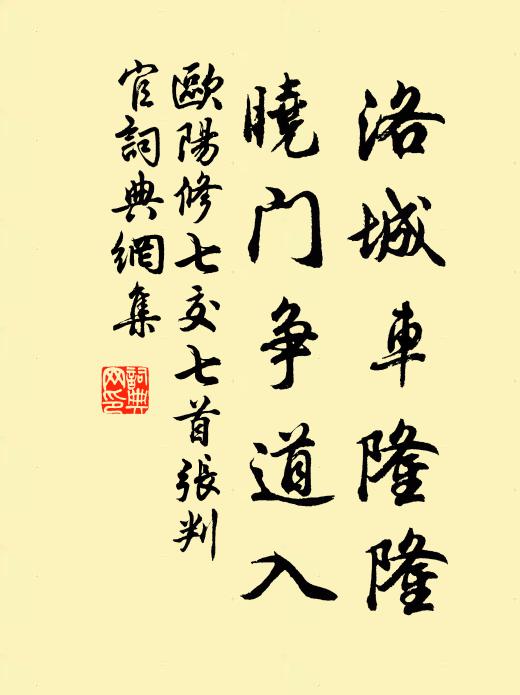 洛城車隆隆
曉门争道入
歐陽修七交七首張判
官詞典網集
詞典
网印